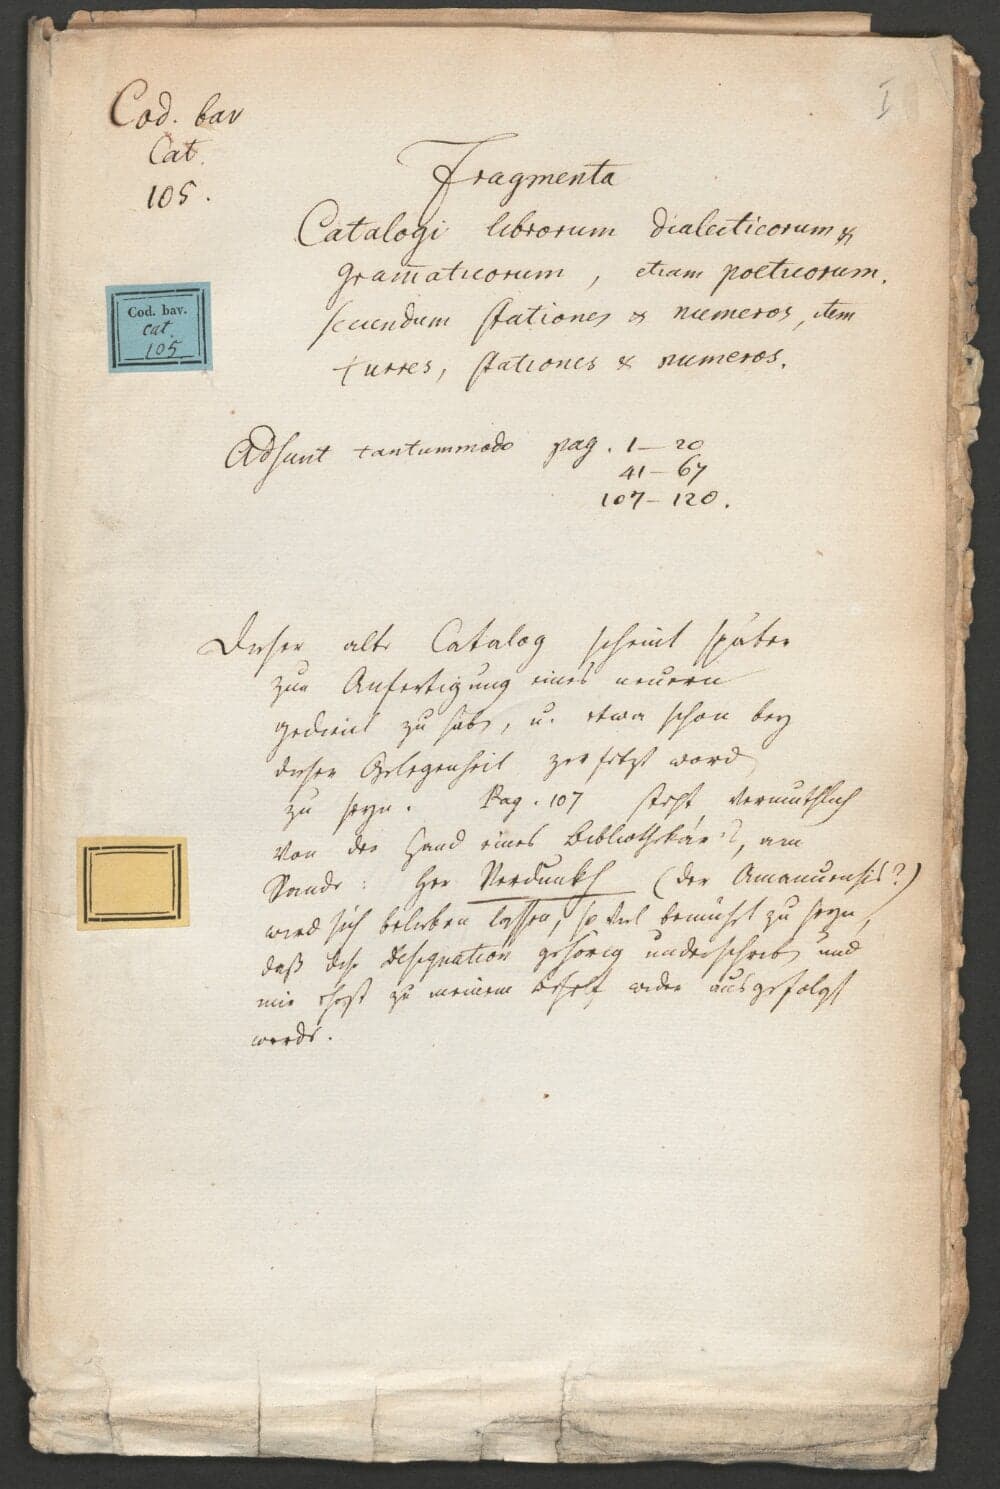 I
Cod. bav
Cat.
105.
Fragmenta
Catalogi librorum dialecticorum &
Gram̄aticorum, etiam poeticorum.
secundum stationes & numeros, item
turres, stationes & numeros.
Cod. bav.
cat.
105
Adsunt tantummodo pag. 1–20
41–67
107–120.
Dieser alte Catalog scheint später
zur Anfertigung eines neuern
gedient zu hab, u. etwa schon bey
dieser Gelegenheit zersetzt word
zu seyn. Pag. 107 steht vermuthlich
von der Hand eines Bibliothekars, am
Rande: Her Verdunkh (der Amanuensis?)
wird sich belieben lassen, so viel bemühet zu seyn,
daß dise Designation gehörig underschrieb und
mir ehest zu meinem Behelf wider ausgefolgt
werde.